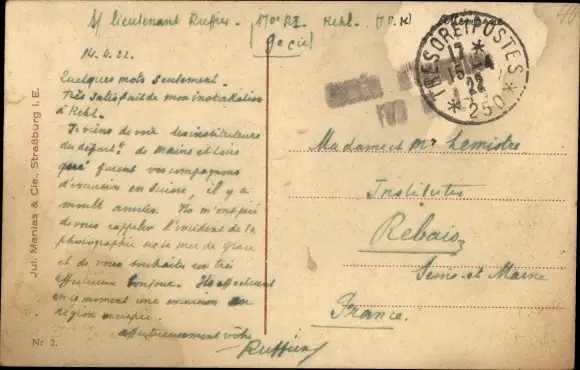 S/ Lieutenant Ruffier. (170e RI. Kehl. (T.P. K)
Allemagne
(9e Cie)
14.4.22.
Quelques mots seulement.
Très satisfait de mon installation
à Kehl.
Je viens de voir les instituteurs
du départt. de Maine et Loire
qui furent vos compagnons
d'excursion en Suisse, il y a
moult années. Ils m'ont prié
de vous rappeler l'incident de la
photographie sur la mer de glace
et de vous souhaiter un très
affectueux bonjour. Ils effectuent
en ce moment une excursion en
région occupée.
affectueusement vôtre
Ruffier
TRESOR ET POSTES
17
15 -4
22
* 250 *
Madame et Mr Lemistre
Instituteur
Rebais
Seine-et-Marne
France.
Jul. Manias & Cie., Straßburg i. E.
Nr 2.